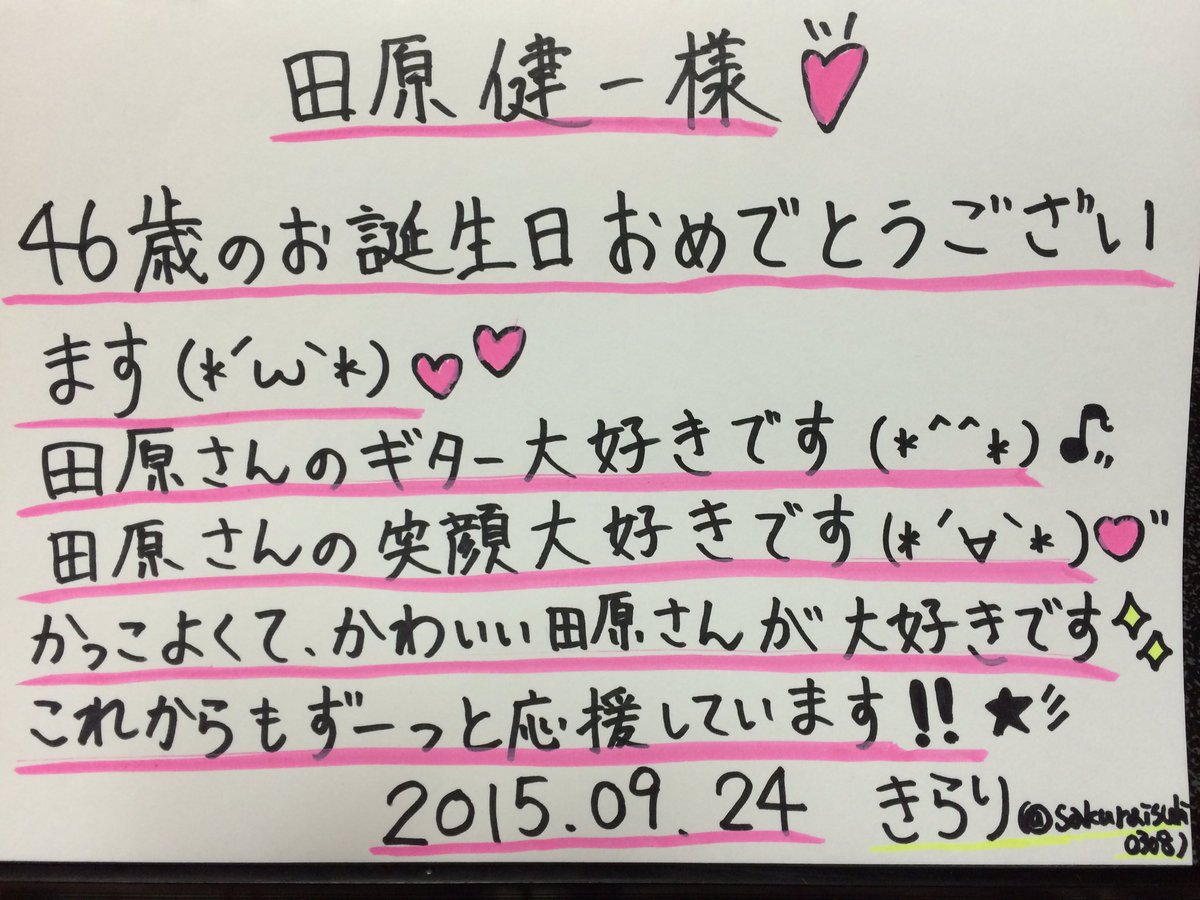 田原健一様
46歳のお誕生日おめでとうござい
ます(*´ω`*)
田原さんのギター大好きです(*^^*)♪
田原さんの笑顔大好きです(*´∀`*)
かっこよくて、かわいい田原さんが大好きです
これからもずーっと応援しています!!★
2015.09.24 きらり(@sakuraisuki
0308)